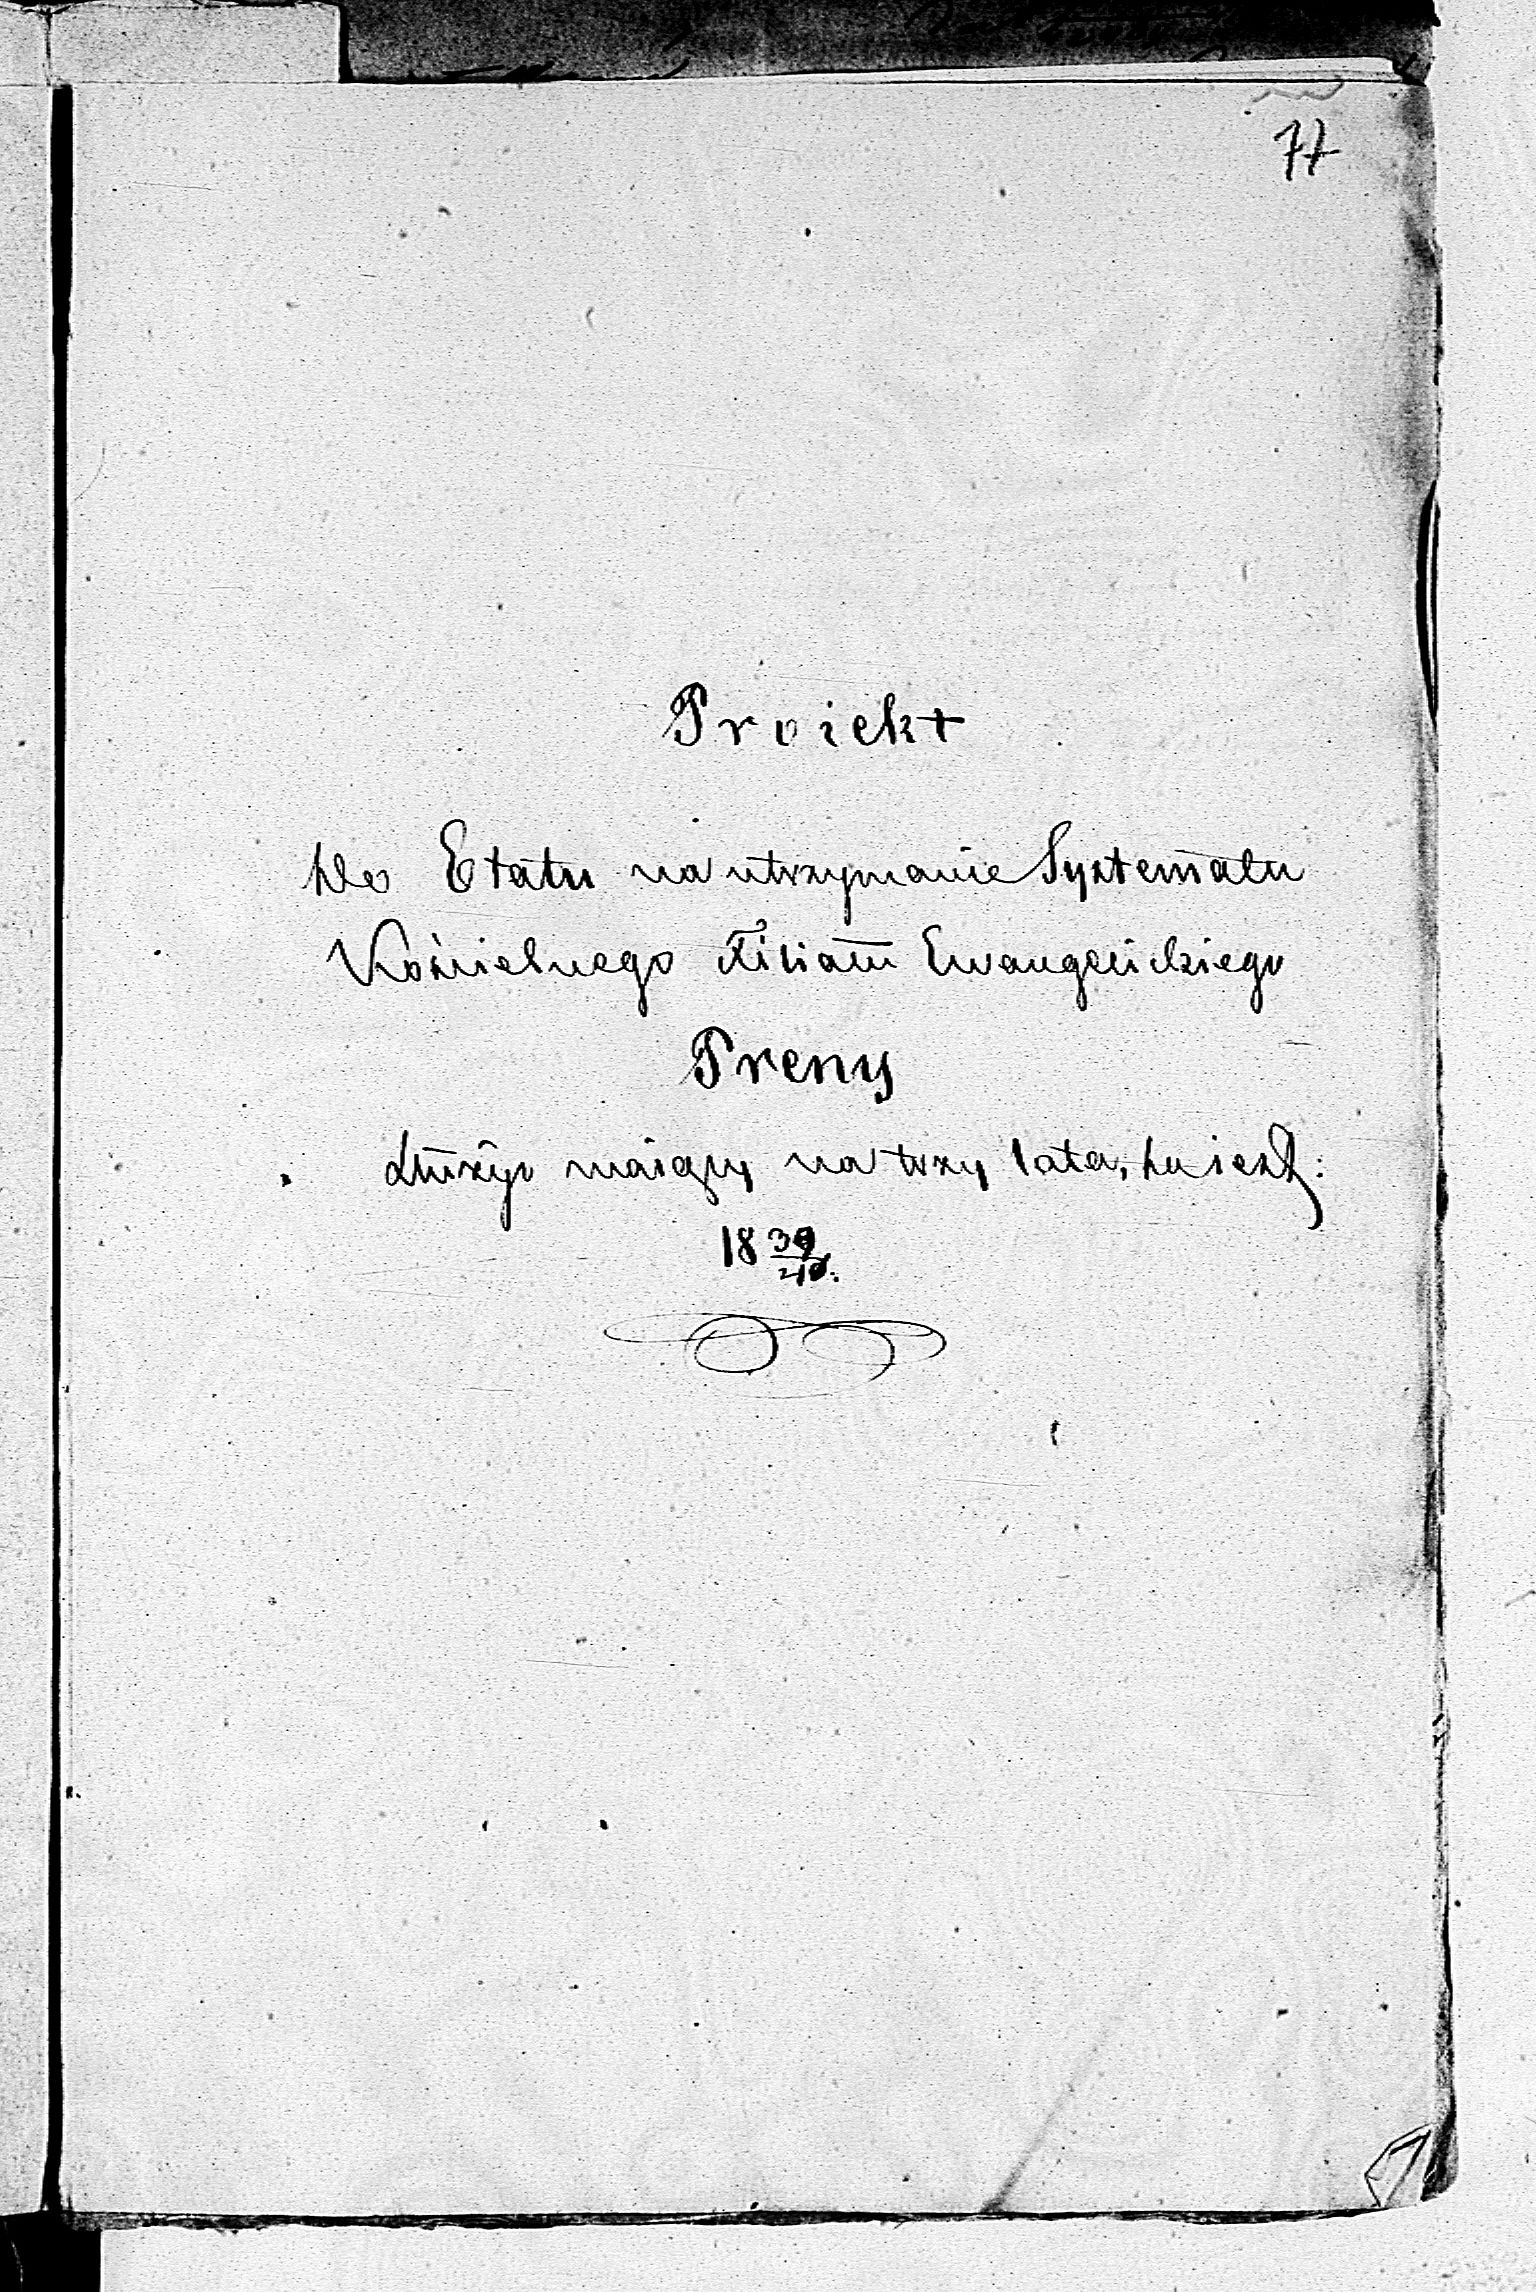 77
Proiekt
do Etatu na utrzymanie Systematu
Kościelnego Filiału Ewangelickiego
Preny
służyć maiący na trzy lata, to iest:
18 39/40.